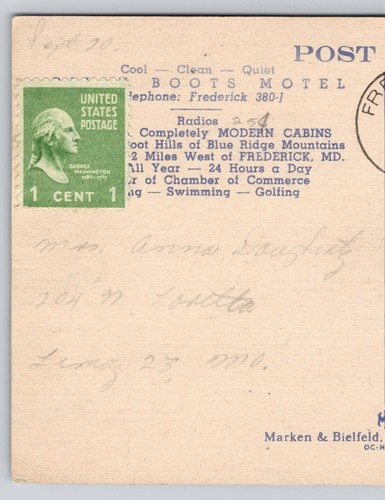 Sept 20.
POST
Cool — Clean — Quiet
BOOTS MOTEL
lephone: Frederick 380-J
Radios 25¢
Completely MODERN CABINS
oot Hills of Blue Ridge Mountains
2 Miles West of FREDERICK, MD.
All Year — 24 Hours a Day
r of Chamber of Commerce
ng — Swimming — Golfing
UNITED
STATES
POSTAGE
GEORGE
WASHINGTON
1789-1797
1 CENT 1
FRE
Mrs. Anna Daugherty
204 W. Loretta
23, Mo.
Marken & Bielfeld,
OC-H